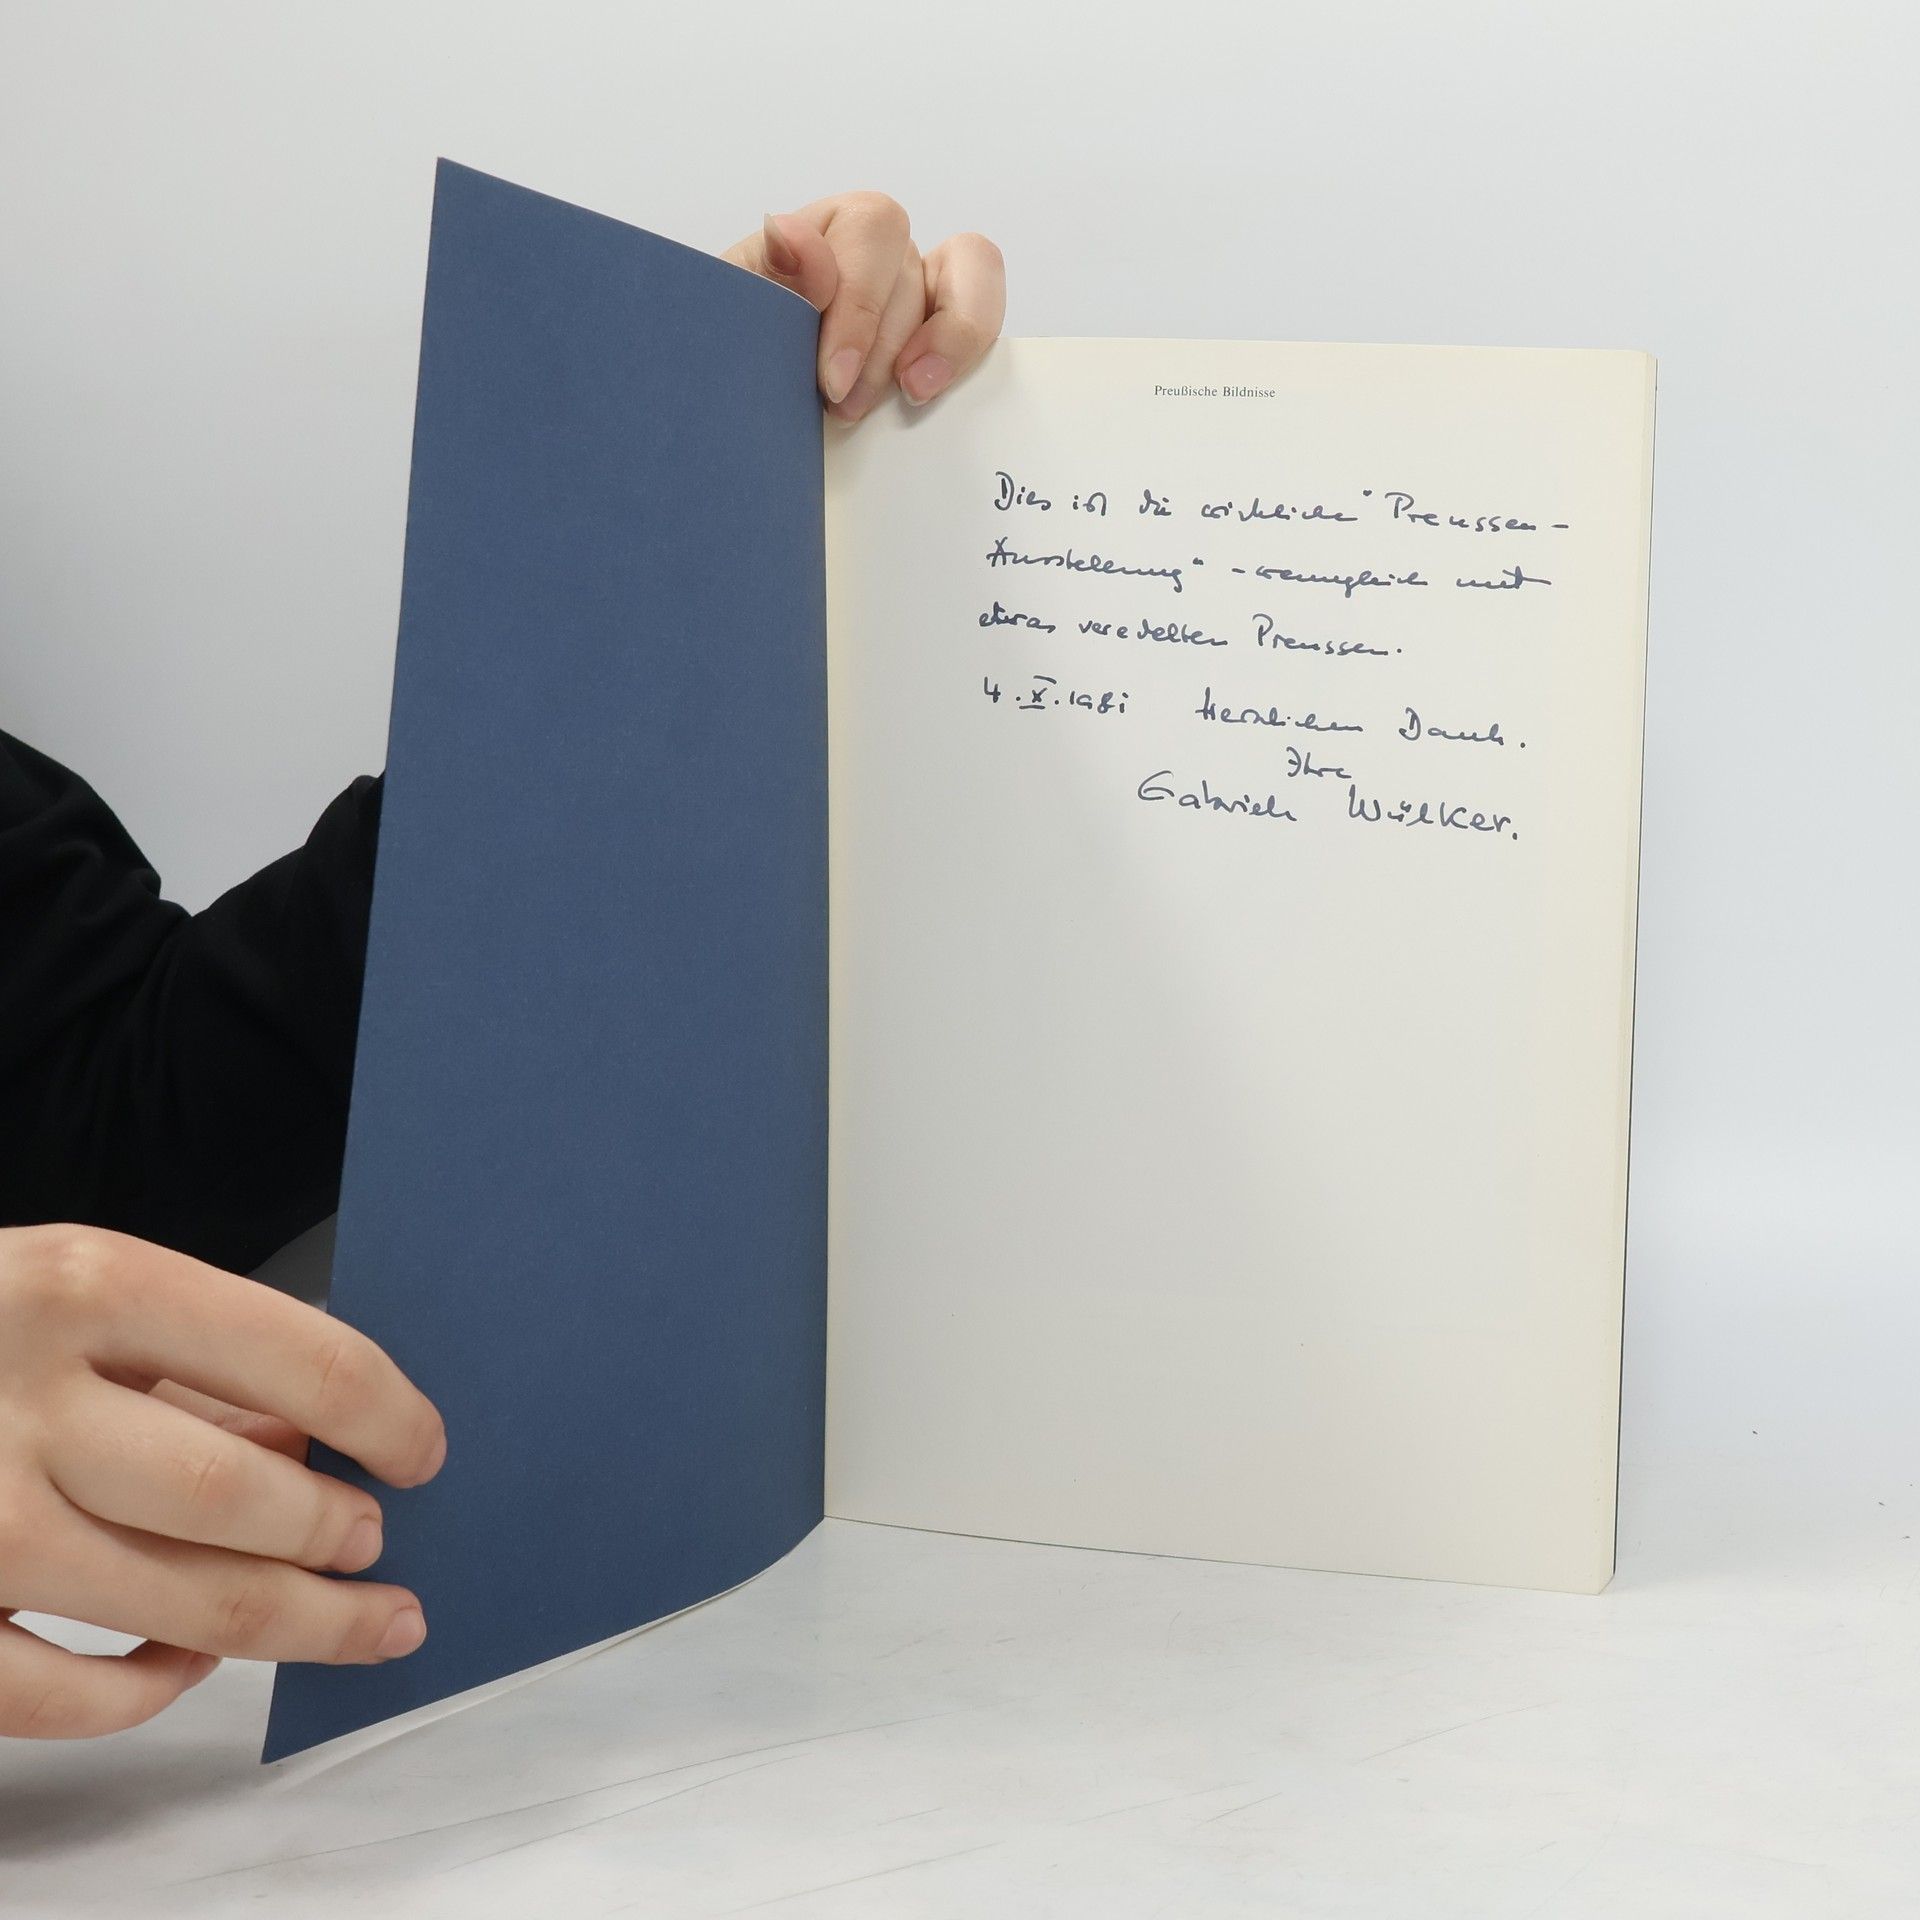 Preußische Bildnisse
Dies ist die wirkliche "Preussen-
Ausstellung" - wenngleich mit
etwas veredelten Preussen.
4.X.1981 Herzlichen Dank.
Ihre
Gabriele Wülker.